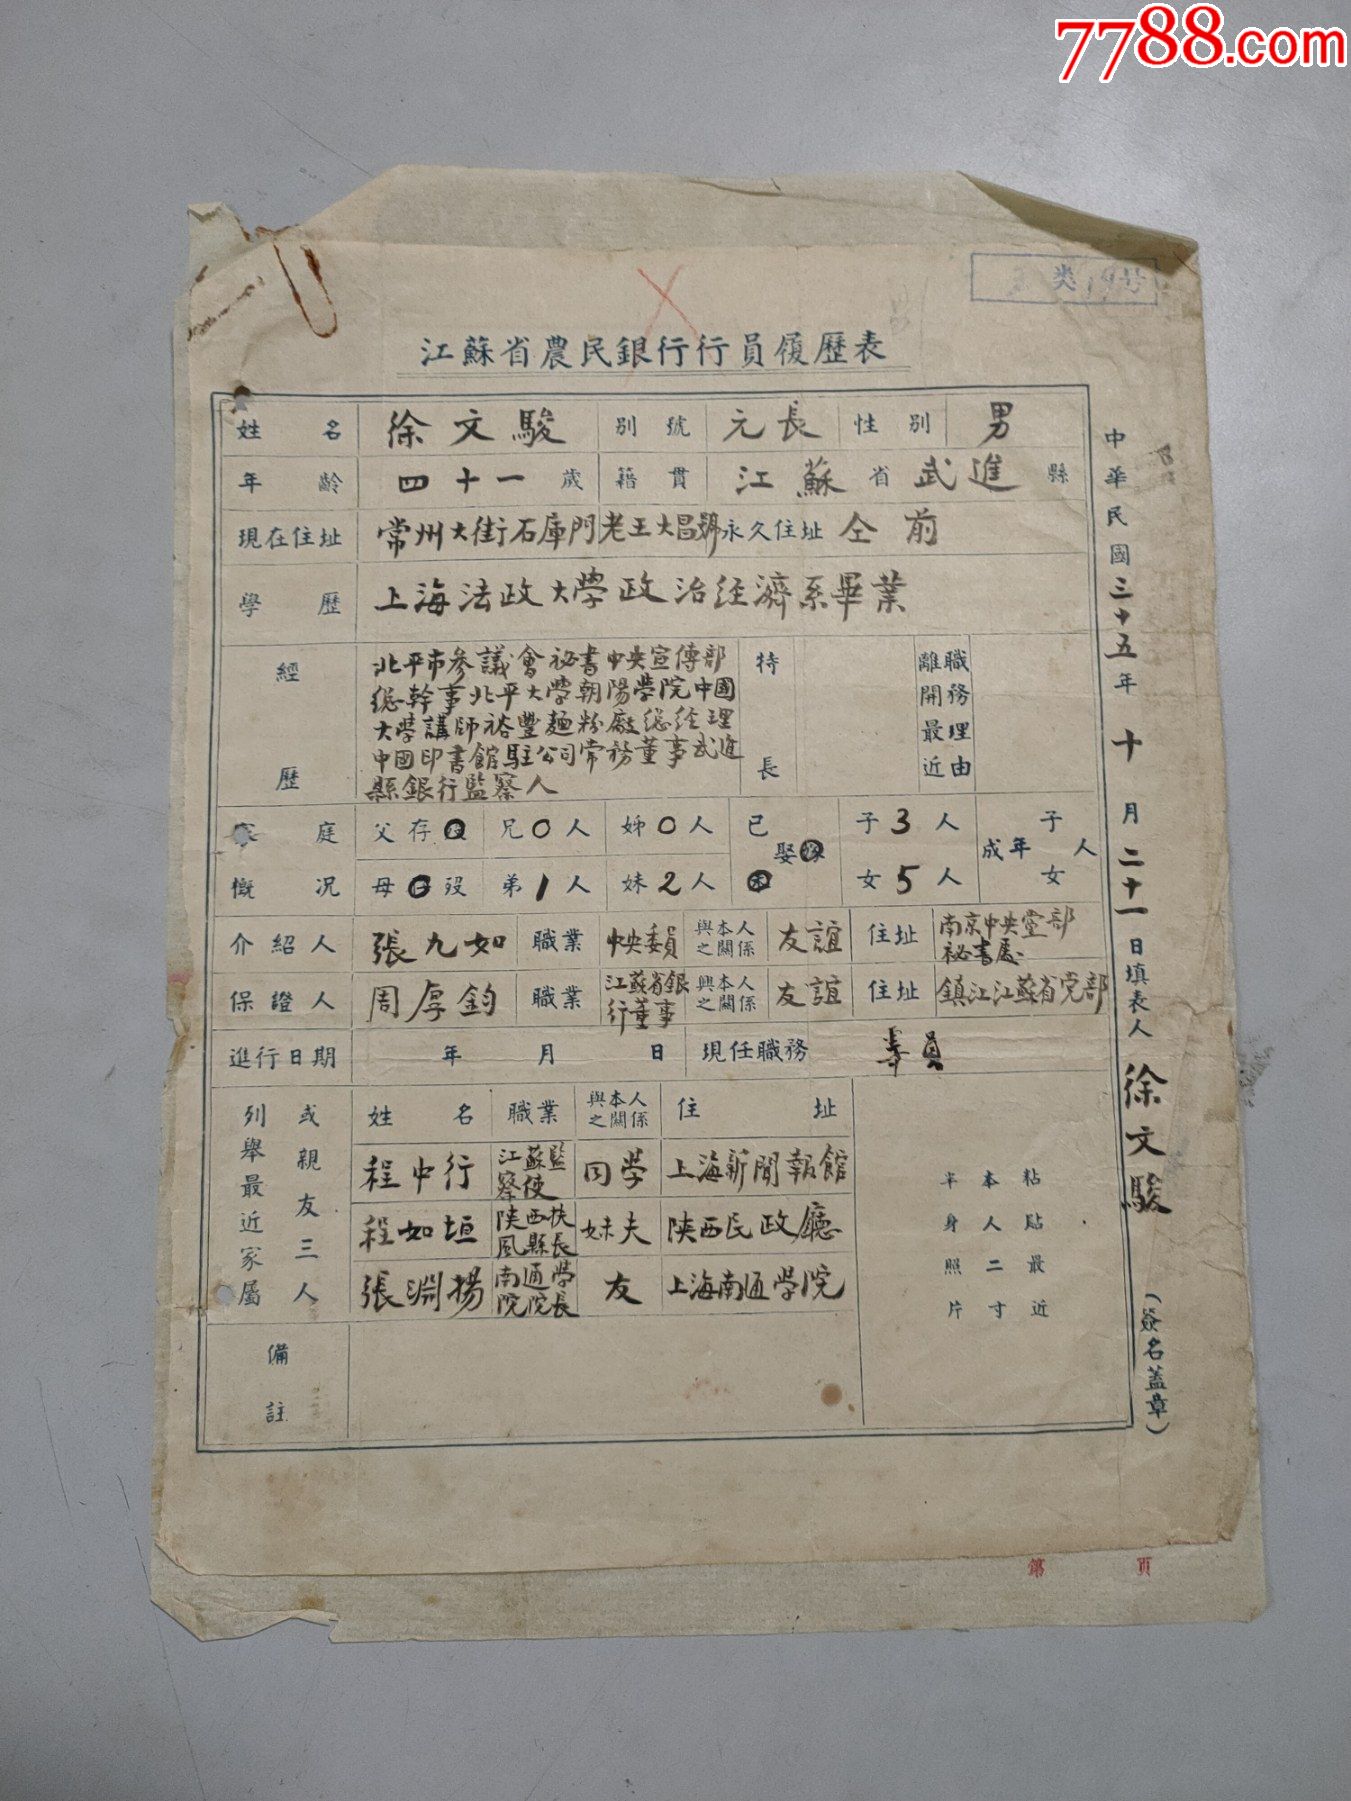 7788.com
类19号
江蘇省農民銀行行員履歷表
姓名 徐文駿 別號 元長 性別 男
年齡 四十一歲 籍貫 江蘇省武進縣
現在住址 常州大街石庫門老王大昌號 永久住址 仝前
學歷 上海法政大學政治經濟系畢業
經歷
北平市參議會祕書中央宣傳部
總幹事北平大學朝陽學院中國
大學講師裕豐麵粉廠總經理
中國印書館駐公司常務董事武進
縣銀行監察人
特長
離開最近
職務理由
家庭概況
父存歿 兄0人 姊0人 已未娶嫁 子3人 成年子女人
母存歿 弟1人 妹2人 女5人
介紹人 張九如 職業 中央委員 與本人之關係 友誼 住址 南京中央黨部祕書處
保證人 周厚鈞 職業 江蘇省銀行董事 與本人之關係 友誼 住址 鎮江江蘇省党部
進行日期 年月日 現任職務 專員
列舉最近家屬
或親友三人
姓名 職業 與本人之關係 住址
程中行 江蘇監察使 同學 上海新聞報館
程如垣 陝西扶風縣長 妹夫 陝西民政廳
張淵揚 南通學院院長 友 上海南通學院
粘貼最近
本人二寸
半身照片
備註
中華民國三十五年十月二十一日填表人 徐文駿 (簽名蓋章)
第 頁